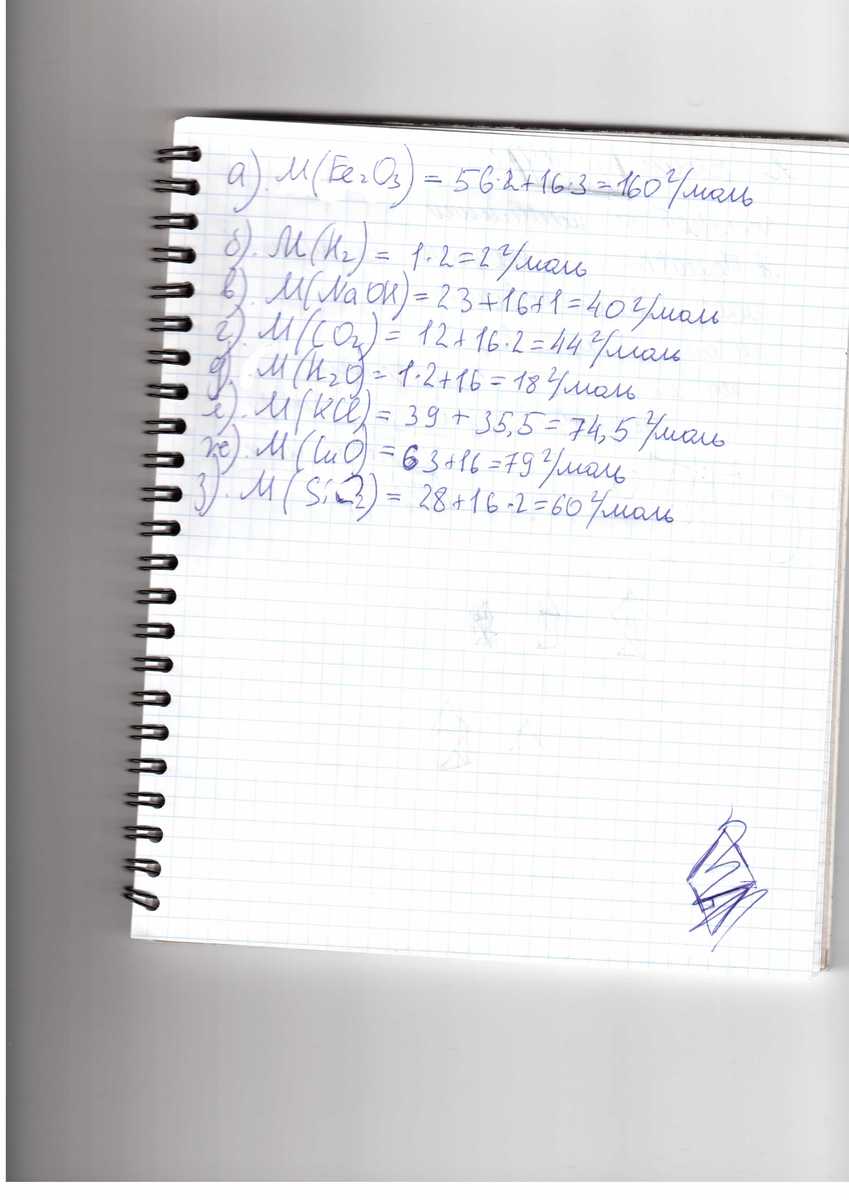 а). M(Fe₂O₃) = 56·2+16·3=160 г/моль
б). M(H₂) = 1·2=2 г/моль
в). M(NaOH)=23+16+1=40 г/моль
г). M(CO₂) = 12+16·2=44 г/моль
д). M(H₂O)=1·2+16=18 г/моль
е). M(KCl)= 39 + 35,5=74,5 г/моль
ж). M(CuO) = 63+16=79 г/моль
з). M(SiO₂) = 28+16·2=60 г/моль